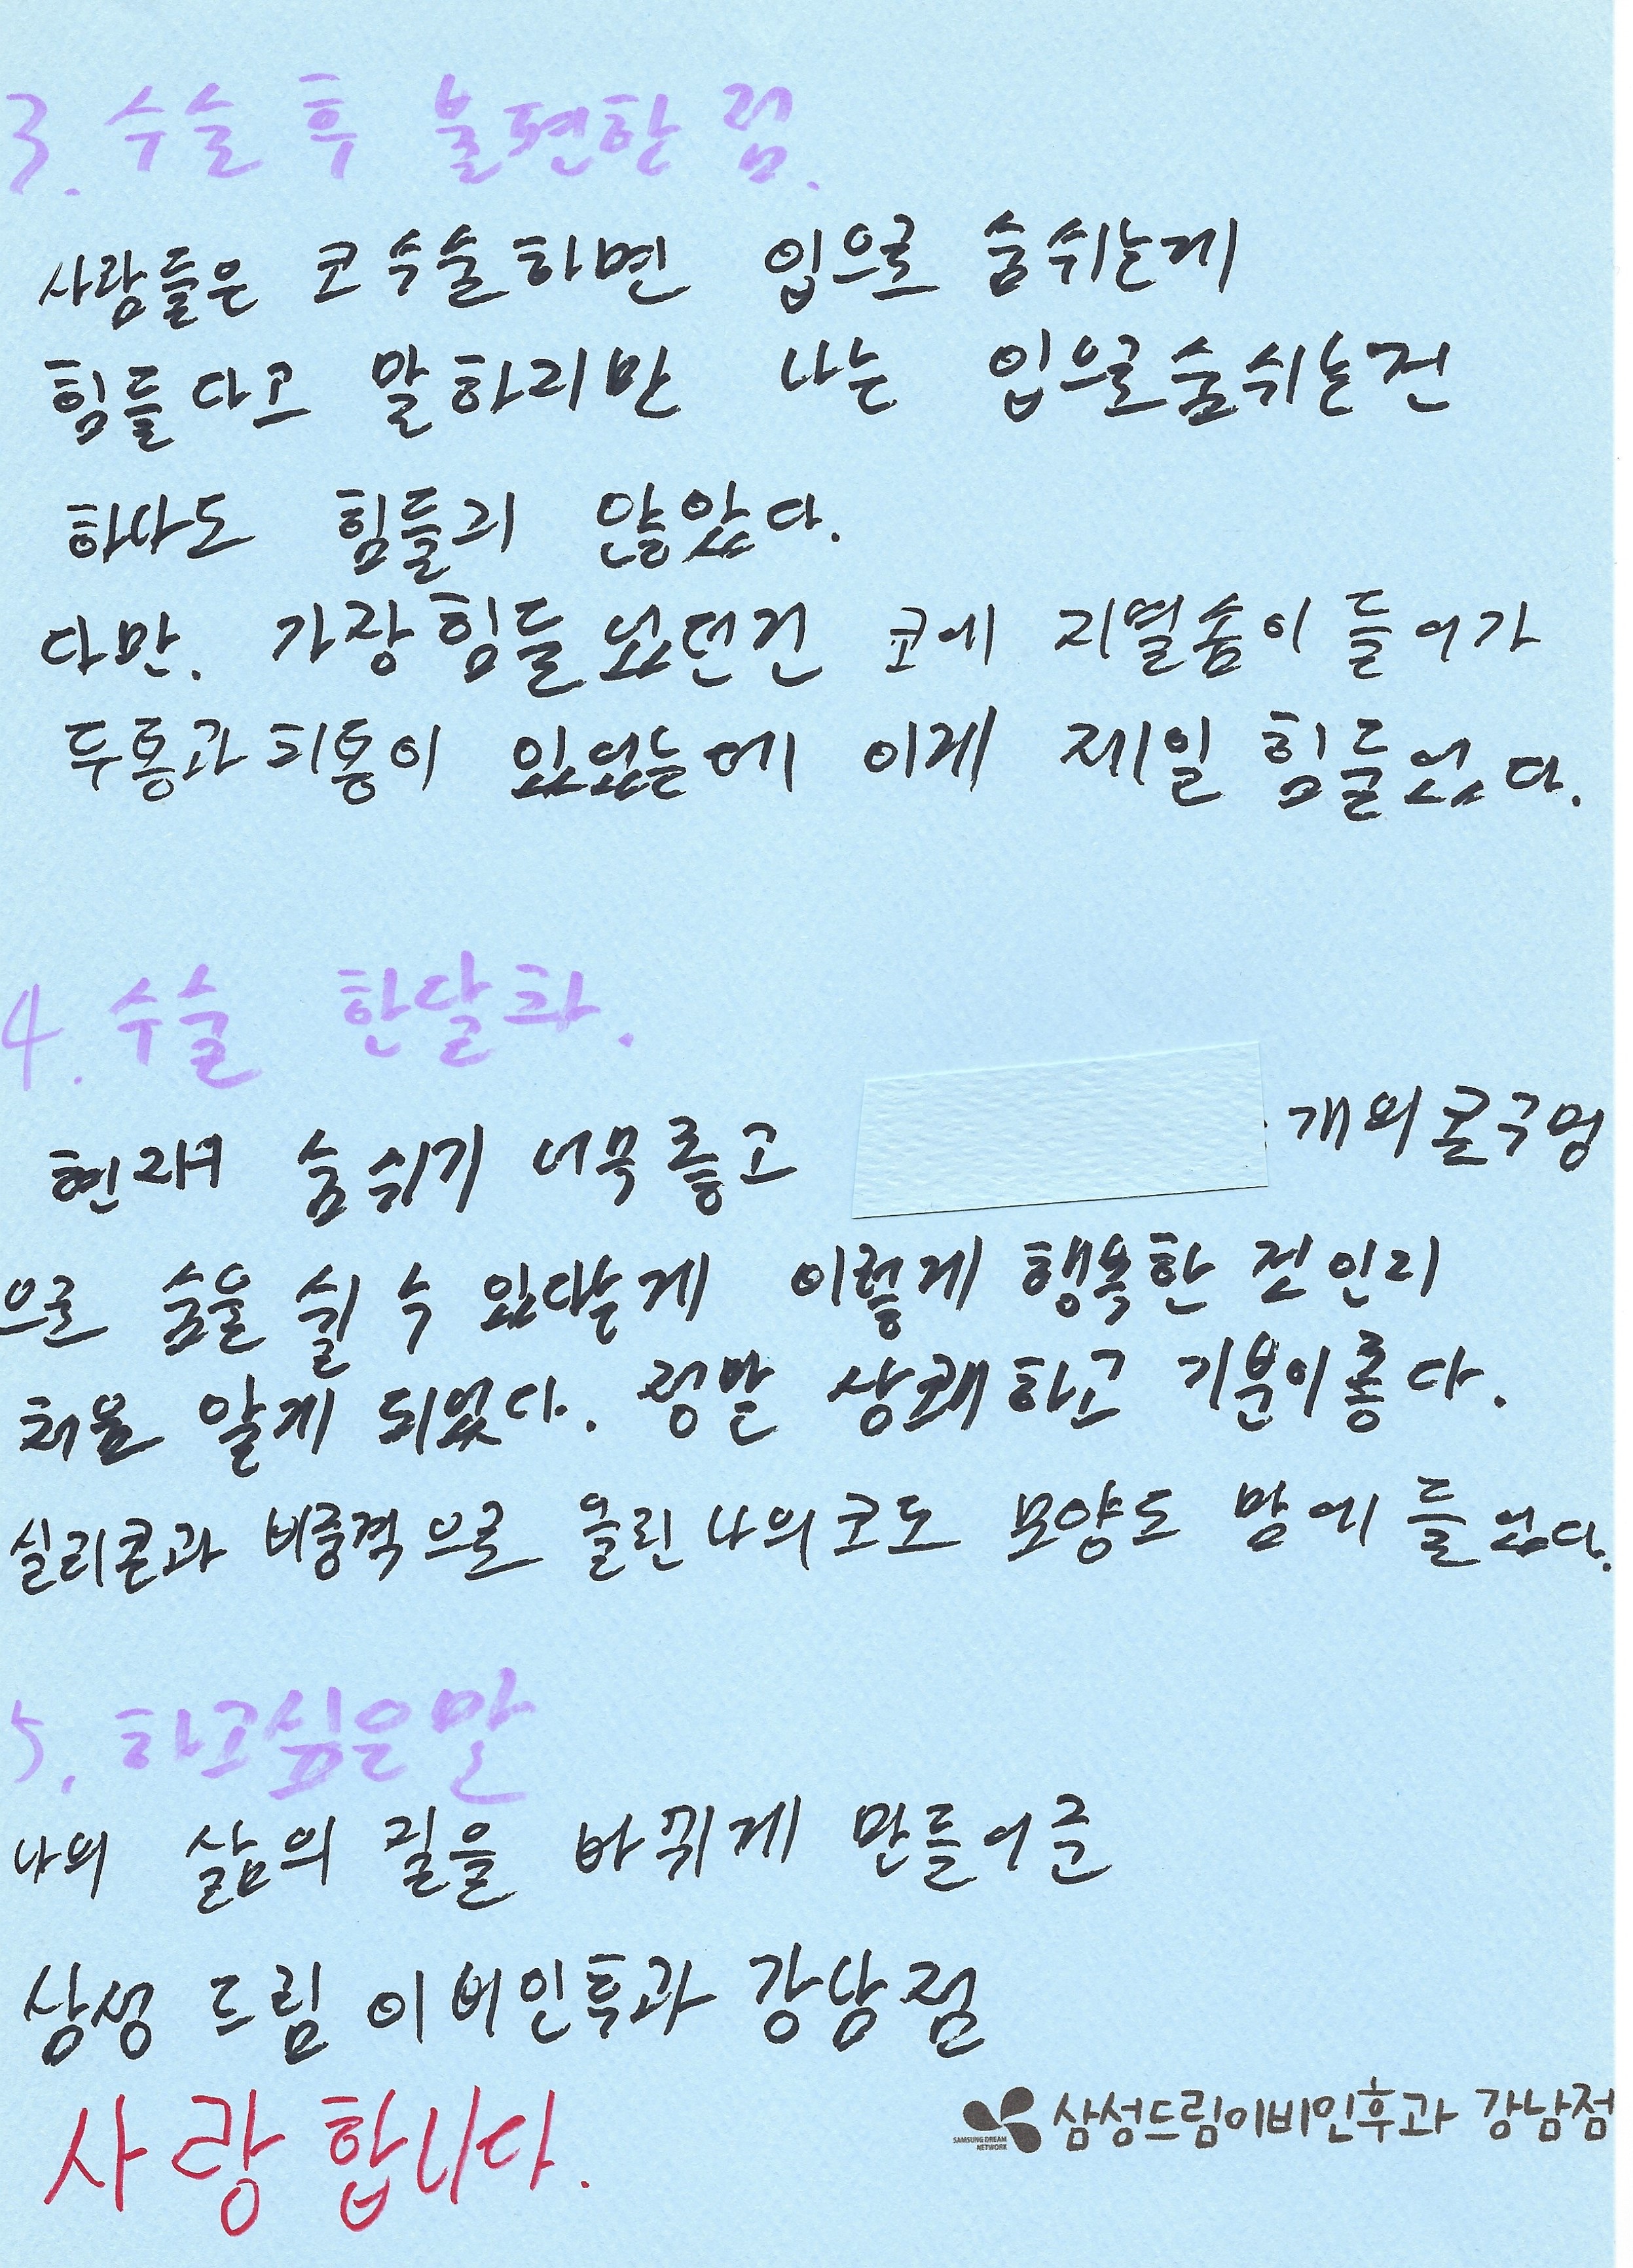 3. 수술 후 불편한 점.
사람들은 코수술하면 입으로 숨쉬는게
힘들다고 말하지만 나는 입으로숨쉬는건
하나도 힘들지 않았다.
다만. 가장힘들었던건 코에 지혈솜이 들어가
두통과 치통이 있었는데 이게 제일 힘들었다.
4. 수술 한달차.
현재 숨쉬기 너무좋고 개의콧구멍
으로 숨을 쉴 수 있다는게 이렇게 행복한 건인지
처음 알게 되었다. 정말 상쾌하고 기분이좋다.
실리콘과 비중격으로 올린 나의코도 모양도 맘에 들었다.
5. 하고싶은말
나의 삶의 질을 바뀌게 만들어준
삼성 드림 이비인후과 강남점
사랑합니다.
SAMSUNG DREAM NETWORK 삼성드림이비인후과 강남점